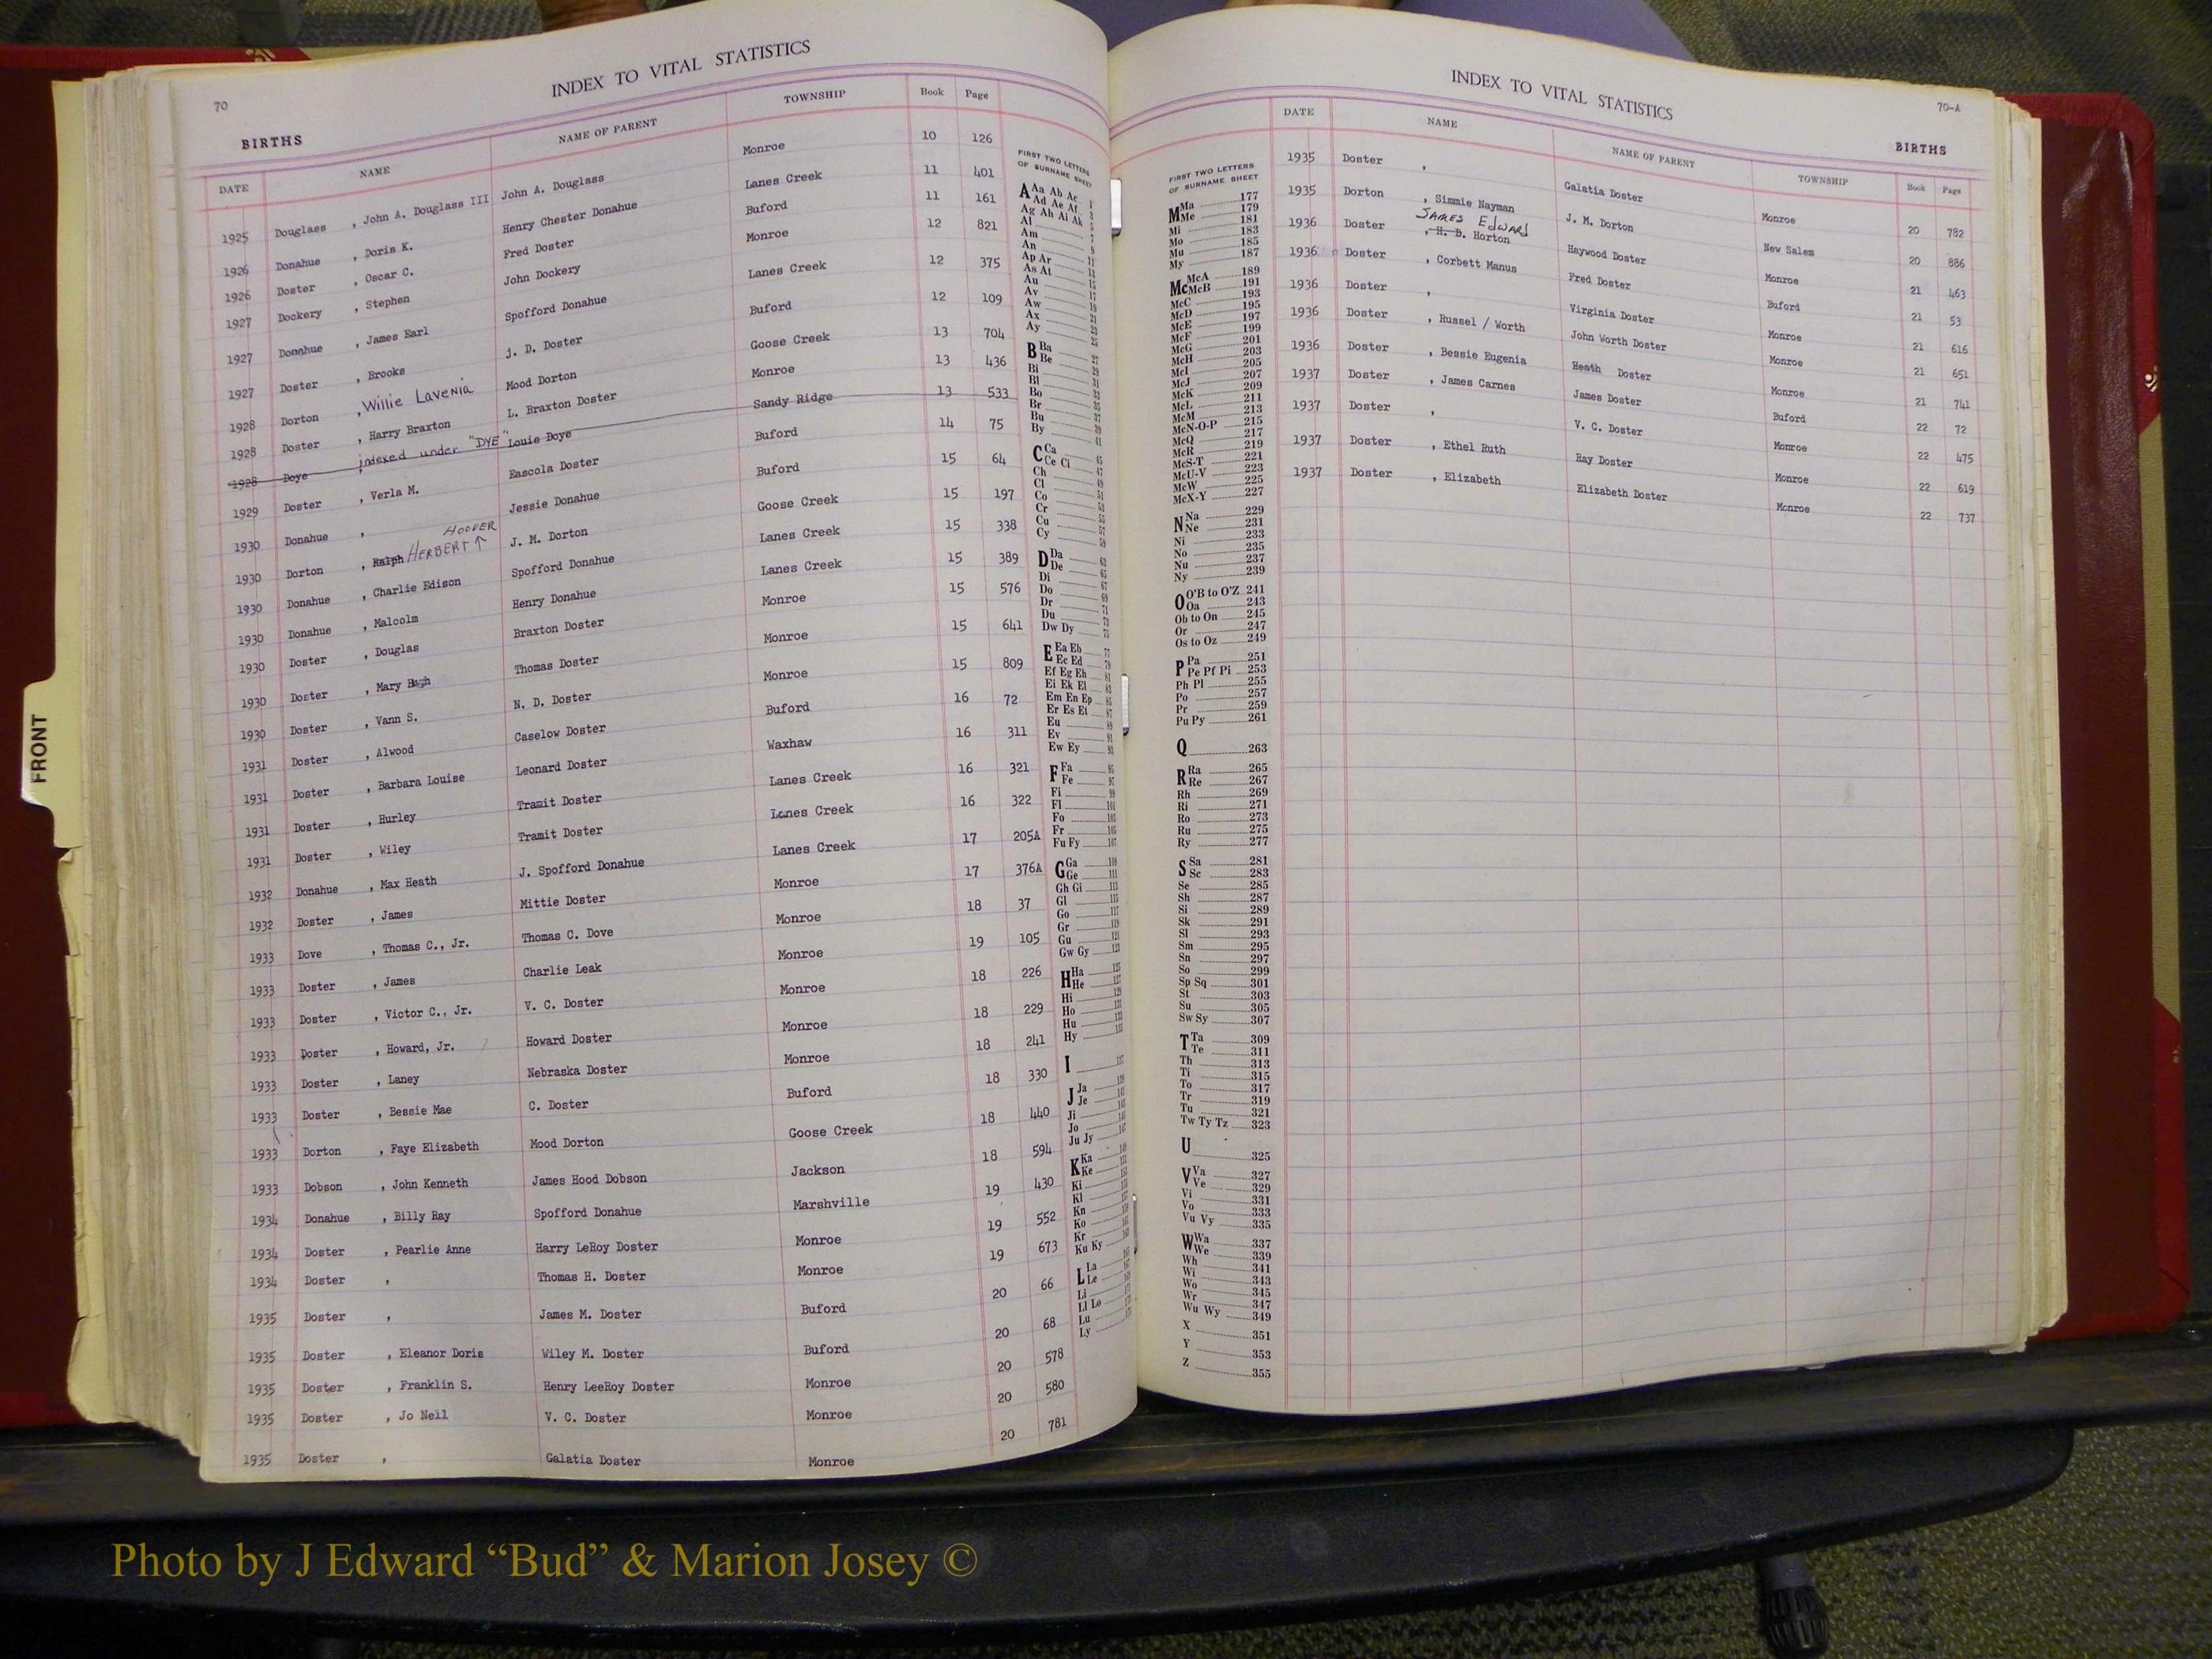 70
INDEX TO VITAL STATISTICS
BIRTHS
DATE NAME NAME OF PARENT TOWNSHIP Book Page
1925 Douglass , John A. Douglass III John A. Douglass Monroe 10 126
1926 Donahue , Doris K. Henry Chester Donahue Lanes Creek 11 401
1926 Doster , Oscar C. Fred Doster Buford 11 161
1927 Dockery , Stephen John Dockery Monroe 12 821
1927 Donahue , James Earl Spofford Donahue Lanes Creek 12 375
1927 Doster , Brooks j. D. Doster Buford 12 109
1928 Dorton , Willie Lavenia Mood Dorton Goose Creek 13 704
1928 Doster , Harry Braxton L. Braxton Doster Monroe 13 436
1928 Doye , indexed under "DYE" Louie Doye Sandy Ridge 13 533
1929 Doster , Verla M. Eascola Doster Buford 14 75
1930 Donahue , Jessie Donahue Buford 15 64
HOOVER
1930 Dorton , Ralph HERBERT ↑ J. M. Dorton Goose Creek 15 197
1930 Donahue , Charlie Edison Spofford Donahue Lanes Creek 15 338
1930 Donahue , Malcolm Henry Donahue Lanes Creek 15 389
1930 Doster , Douglas Braxton Doster Monroe 15 576
1930 Doster , Mary Thomas Doster Monroe 15 641
1930 Doster , Vann S. N. D. Doster Monroe 15 809
1931 Doster , Alwood Caselow Doster Buford 16 72
1931 Doster , Barbara Louise Leonard Doster Waxhaw 16 311
1931 Doster , Hurley Tramit Doster Lanes Creek 16 321
1931 Doster , Wiley Tramit Doster Lanes Creek 16 322
1932 Donahue , Max Heath J. Spofford Donahue Lanes Creek 17 205A
1932 Doster , James Mittie Doster Monroe 17 376A
1933 Dove , Thomas C., Jr. Thomas C. Dove Monroe 18 37
1933 Doster , James Charlie Leak Monroe 19 105
1933 Doster , Victor C., Jr. V. C. Doster Monroe 18 226
1933 Doster , Howard, Jr. Howard Doster Monroe 18 229
1933 Doster , Laney Nebraska Doster Monroe 18 241
1933 Doster , Bessie Mae C. Doster Buford 18 330
1933 Dorton , Faye Elizabeth Mood Dorton Goose Creek 18 440
1933 Dobson , John Kenneth James Hood Dobson Jackson 18 594
1934 Donahue , Billy Ray Spofford Donahue Marshville 19 430
1934 Doster , Pearlie Anne Harry LeRoy Doster Monroe 19 552
1934 Doster , Thomas H. Doster Monroe 19 673
1935 Doster , James M. Doster Buford 20 66
1935 Doster , Eleanor Doris Wiley M. Doster Buford 20 68
1935 Doster , Franklin S. Henry LeeRoy Doster Monroe 20 578
1935 Doster , Jo Nell V. C. Doster Monroe 20 580
1935 Doster , Galatia Doster Monroe 20 781
FIRST TWO LETTERS
OF SURNAME SHEET
A Aa Ab Ac
Ad Ae Af
Ag Ah Ai Ak
Al
Am
An
Ap Ar
As At
Au
Av
Aw
Ax
Ay
B Ba
Be
Bi
Bl
Bo
Br
Bu
By
C Ca
Ce Ci
Ch
Cl
Co
Cr
Cu
Cy
D Da
De
Di
Do
Dr
Du
Dw Dy
E Ea Eb
Ec Ed
Ef Eg Eh
Ei Ek El
Em En Ep
Er Es Et
Eu
Ev
Ew Ey
F Fa
Fe
Fi
Fl
Fo
Fr
Fu Fy
G Ga
Ge
Gh Gi
Gl
Go
Gr
Gu
Gw Gy
H Ha
He
Hi
Ho
Hu
Hy
I
J Ja
Je
Ji
Jo
Ju Jy
K Ka
Ke
Ki
Kl
Kn
Ko
Kr
Ku Ky
L La
Le
Li
Ll Lo
Lu
Ly
FRONT
INDEX TO VITAL STATISTICS
70-A
BIRTHS
FIRST TWO LETTERS
OF SURNAME SHEET
M Ma 177
Me 179
Mi 181
Mo 183
Mu 185
My 187
Mc McA 189
McB 191
McC 193
McD 195
McE 197
McF 199
McG 201
McH 203
McI 205
McJ 207
McK 209
McL 211
McM 213
McN-O-P 215
McQ 217
McR 219
McS-T 221
McU-V 223
McW 225
McX-Y 227
N Na 229
Ne 231
Ni 233
No 235
Nu 237
Ny 239
O O'B to O'Z 241
Oa 243
Ob to On 245
Or 247
Os to Oz 249
P Pa 251
Pe Pf Pi 253
Ph Pl 255
Po 257
Pr 259
Pu Py 261
Q 263
R Ra 265
Re 267
Rh 269
Ri 271
Ro 273
Ru 275
Ry 277
S Sa 281
Sc 283
Se 285
Sh 287
Si 289
Sk 291
Sl 293
Sm 295
Sn 297
So 299
Sp Sq 301
St 303
Su 305
Sw Sy 307
T Ta 309
Te 311
Th 313
Ti 315
To 317
Tr 319
Tu 321
Tw Ty Tz 323
U 325
V Va 327
Ve 329
Vi 331
Vo 333
Vu Vy 335
W Wa 337
We 339
Wh 341
Wi 343
Wo 345
Wr 347
Wu Wy 349
X 351
Y 353
Z 355
DATE NAME NAME OF PARENT TOWNSHIP Book Page
1935 Doster , Galatia Doster Monroe 20 782
1935 Dorton , Simmie Nayman J. M. Dorton New Salem 20 886
JAMES EDWARD
1936 Doster , H. B. Horton Haywood Doster Monroe 21 463
1936 Doster , Corbett Manus Fred Doster Buford 21 53
1936 Doster , Virginia Doster Monroe 21 616
1936 Doster , Russel / Worth John Worth Doster Monroe 21 651
1936 Doster , Bessie Eugenia Heath Doster Monroe 21 741
1937 Doster , James Carnes James Doster Buford 22 72
1937 Doster , V. C. Doster Monroe 22 475
1937 Doster , Ethel Ruth Ray Doster Monroe 22 619
1937 Doster , Elizabeth Elizabeth Doster Monroe 22 737
Photo by J Edward “Bud” & Marion Josey ©